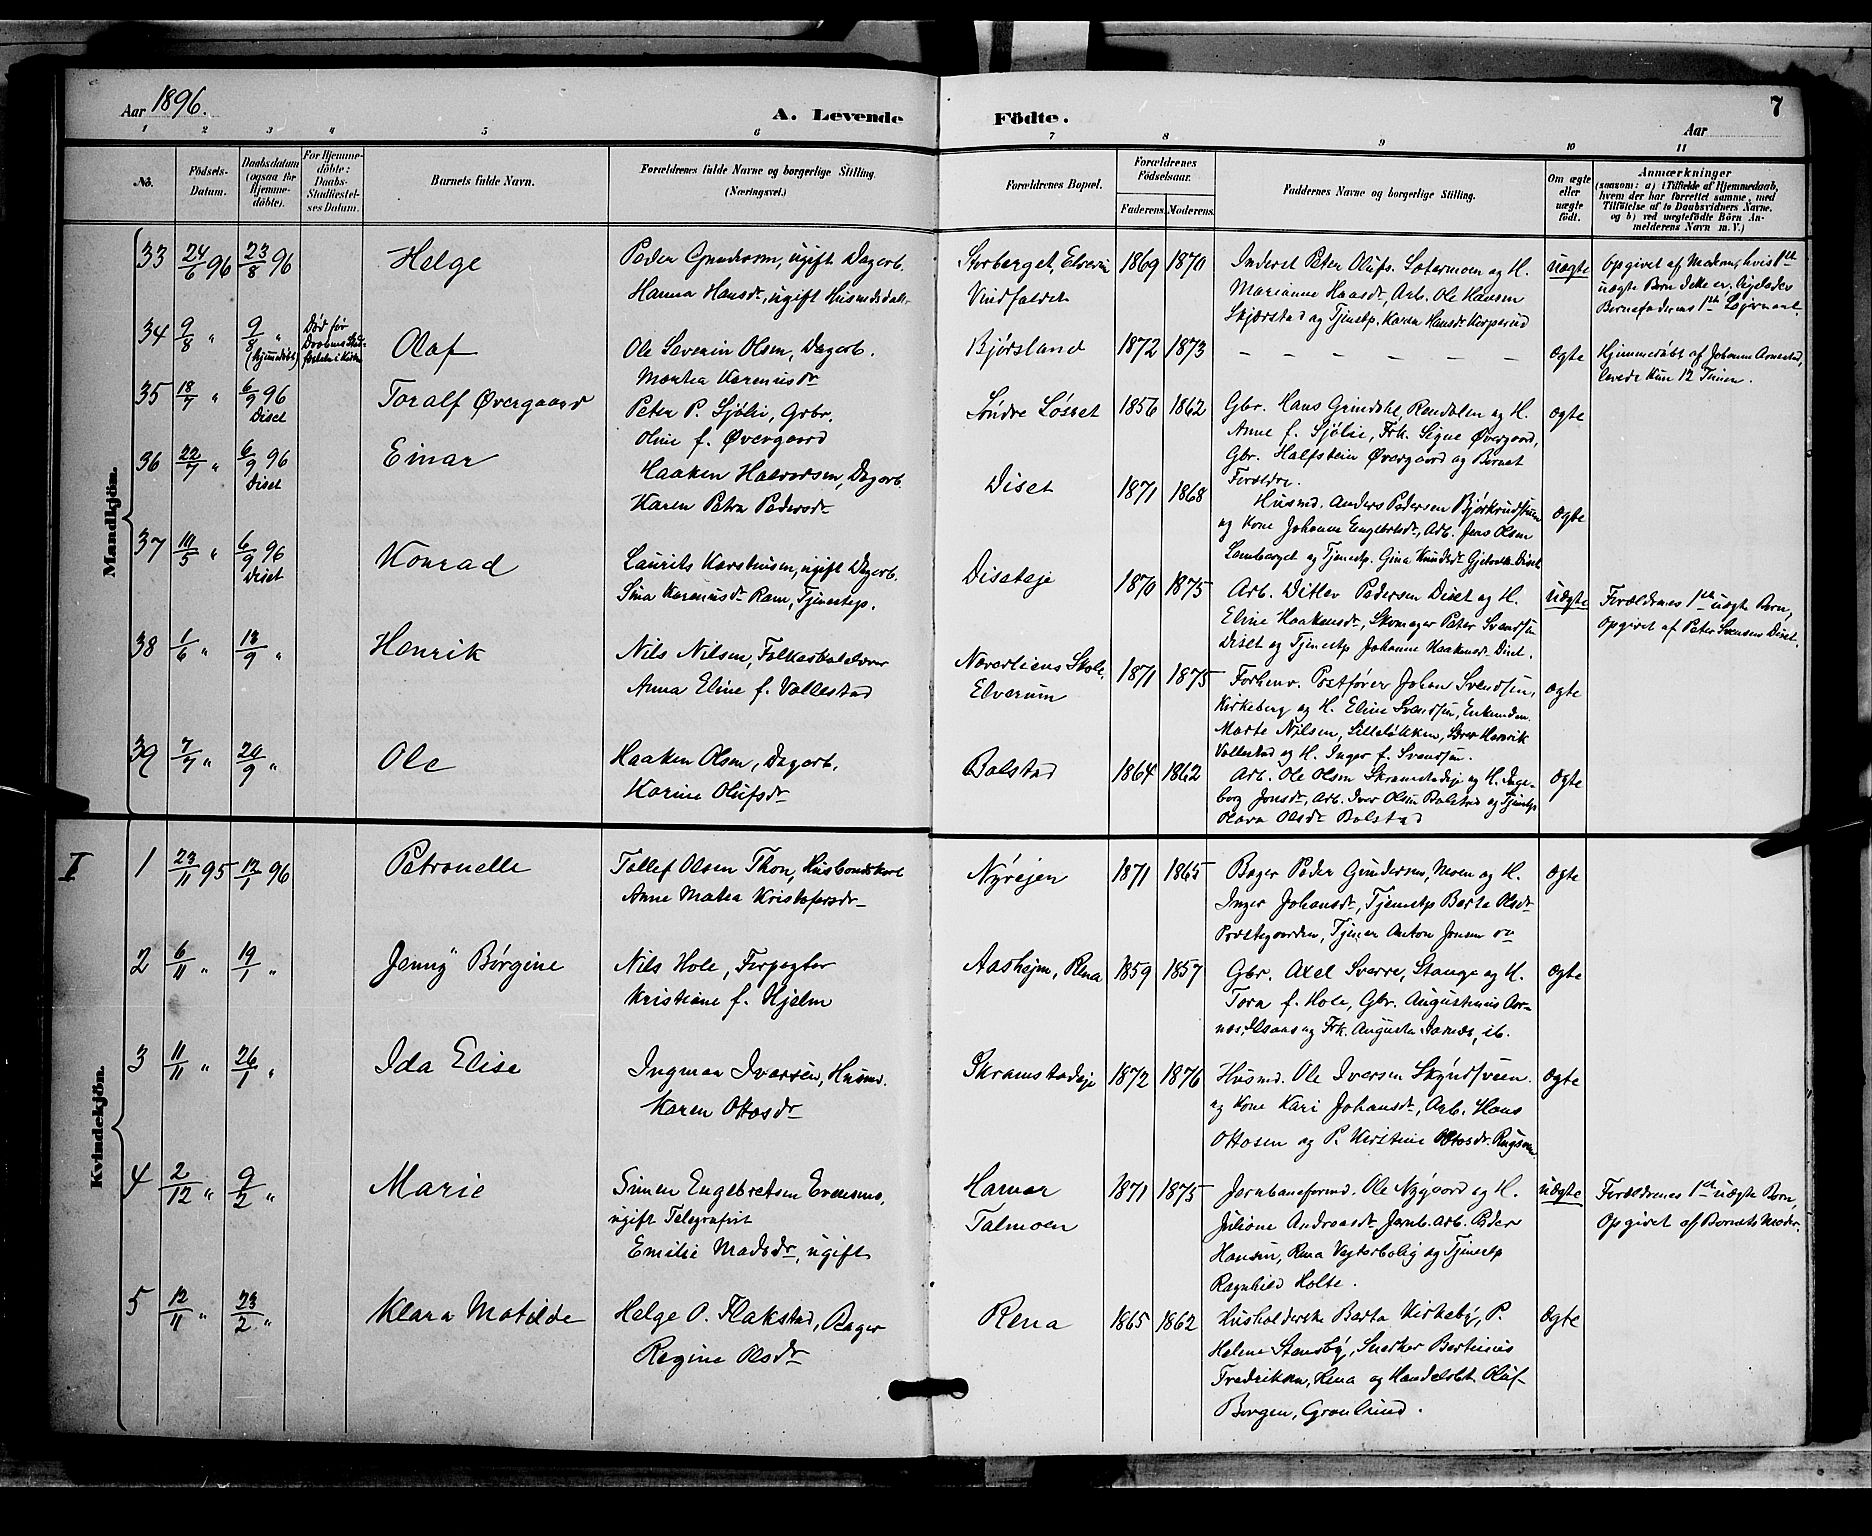 Aar 1896.
A. Levende Födte.
7
Aar
1 2 3 4 5 6 7 8 9 10 11
No.
Födsels-Datum.
Daabsdatum (ogsaa for Hjemme-döbte).
For Hjemme-döbte: Daabs-Stadfæstel-ses Datum.
Barnets fulde Navn.
Forældrenes fulde Navne og borgerlige Stilling.
(Næringsvei.)
Forældrenes Bopæl.
Forældrenes Födselsaar.
Faderens. Moderens.
Faddernes Navne og borgerlige Stilling.
Om ægte eller uægte födt.
Anmærkninger
(saasom: a) i Tilfælde af Hjemmedaab,
hvem der har forrettet samme, med
Tilföielse af to Daabsvidners Navne,
og b) ved uægtefödte Börn An-
melderens Navn m. V.)
Mandkjön.
33 24/6 96 23/8 96 Helge
Peder Gundersen, ugift Dagarb.
Hanna Hansdr, ugift
Storberget, Elverum
Vindfaldet
1869 1870
Inderst Peter Olufs. Sætermoen og H.
Marianne Haasdr, Arb. Ole Hansen
Skjærstad og Tjenestp. Karen Hansdr
uægte
Opgivet af Moderen, hvis 1ste
uægte Barn dette er. Ligeledes
Barnefaderens 1ste Leiermaal.
34 9/8 " 9/8 " (hjemdøbt)
Død før
Olaf
Ole Severin Olsen, Dagarb.
Martea Karenusdr
Bjørsland
1872 1873
– – – – – – –
ægte
Hjemmedøbt af Johanne
levede kun 12 Timer.
35 18/7 " 6/9 96 Diset
Toralf Øvergaard
Peter P. Sjølie, Gbr.
Oline f. Øvergaard
Søndre Løsset
1856 1862
Gbr. Hans Grindahl Rendalen og H.
Anne f. Sjølie, Frk. Signe Øvergaard,
Gbr. Halfstein Øvergaard og Barnets
Forældre.
ægte
36 22/7 " 6/9 96 Diset
Einar
Haaken Halvorsen, Dagarb.
Karen Petra Pedersdr
Diset
1871 1868
Husmd. Anders Pedersen
og Kone Johanne Engebretsdr, Arb. Jens Olsen
og Tjenestp. Gina Knudsdr Diset
ægte
37 10/5 " 6/9 96 Diset
Konrad
Laurits Karstensen, ugift Dagarb.
Sina Karenusdr Ram, Tjenestep.
Diseteje
1870 1875
Arb. Ditlev Pedersen Diset og H.
Eline Haakensdr, Skomager Peter Svendsen
Diset og Tjenestp Johanne Haakensdr Diset.
uægte
Forældrenes 1ste uægte Barn,
Opgivet af Peter Svensen Diset.
38 1/6 " 13/9 "
Henrik
Nils Nilsen, Folkeskolelærer
Anna Eline f. Vollestad
Næverliens Skole,
Elverum
1871 1875
Forhenv. Postfører Johan Svendsen,
Kirkeberg og H. Eline Svendsen, Enkemaden
Marte Nilsen, Lilleløkken, Lærer Henrik
Vollestad og H. Inger f. Svendsen.
ægte
39 7/7 " 20/9 "
Ole
Haaken Olsen, Dagarb.
Karine Olufsdr
Bolstad
1864 1862
Arb. Ole Olsen Skramstadeje og H. Inge-
borg Jonsdr, Arb. Iver Olsen Bolstad og Tjenestp
Olava Olsdr Bolstad
ægte
I
Kvindekjön.
1 23/11 95 12/1 96
Petronelle
Tollef Olsen Thon, Husbondskarl
Anne Matea Kristofersdr
Nyrejen
1871 1865
Bager Peder Gundersen, Moen og H.
Inger Johansdr, Tjenestp Berta Olsdr
Præstegaarden, Tjener Anton Jonsen
ægte
2 6/11 " 19/1 "
Jenny Børgine
Nils Hole, Forpagter
Kristiane f. Hjelm
Aasheim, Rena
1859 1857
Gbr. Axel Sverre, Stange og H.
Tora f. Hole, Gbr. Augustinius Aar-
næs, og Frk. Augusta Aarnæs, ib.
ægte
3 11/11 " 26/1 "
Ida Elise
Ingman Iversen, Husmd.
Karen Ottosdr
Skramstadeje
1872 1876
Husmd. Ole Iversen
og Kone Kari Johansdr, Arb. Hans
Ottosen og P. Kirstine Ottosdr.
ægte
4 2/12 " 9/2 "
Marie
Simen Engebretsen Evensmo,
ugift Telegrafist
Emilie Madsdr, ugift
Hamar
Talmoen
1871 1875
Jernbaneformd. Ole Nygaard og H.
Juliane Andreasdr Jernb. Arb. Peder
Hansen, Rena Vogterbolig og Tjenestp
Ragnhild Holte.
uægte
Forældrenes 1ste uægte Barn,
Opgivet af Barnets Moder.
5 12/11 " 23/2 "
Klara Matilde
Helge O. Flakstad, Bager
Regine Olsdr
Rena
1865 1862
Husholderske Berta Kirkeby, P.
Helene Stensby, Snedker Bertinius
Fredriksen, Rena og Handelsbt. Oluf
Borgen, Grønlund.
ægte